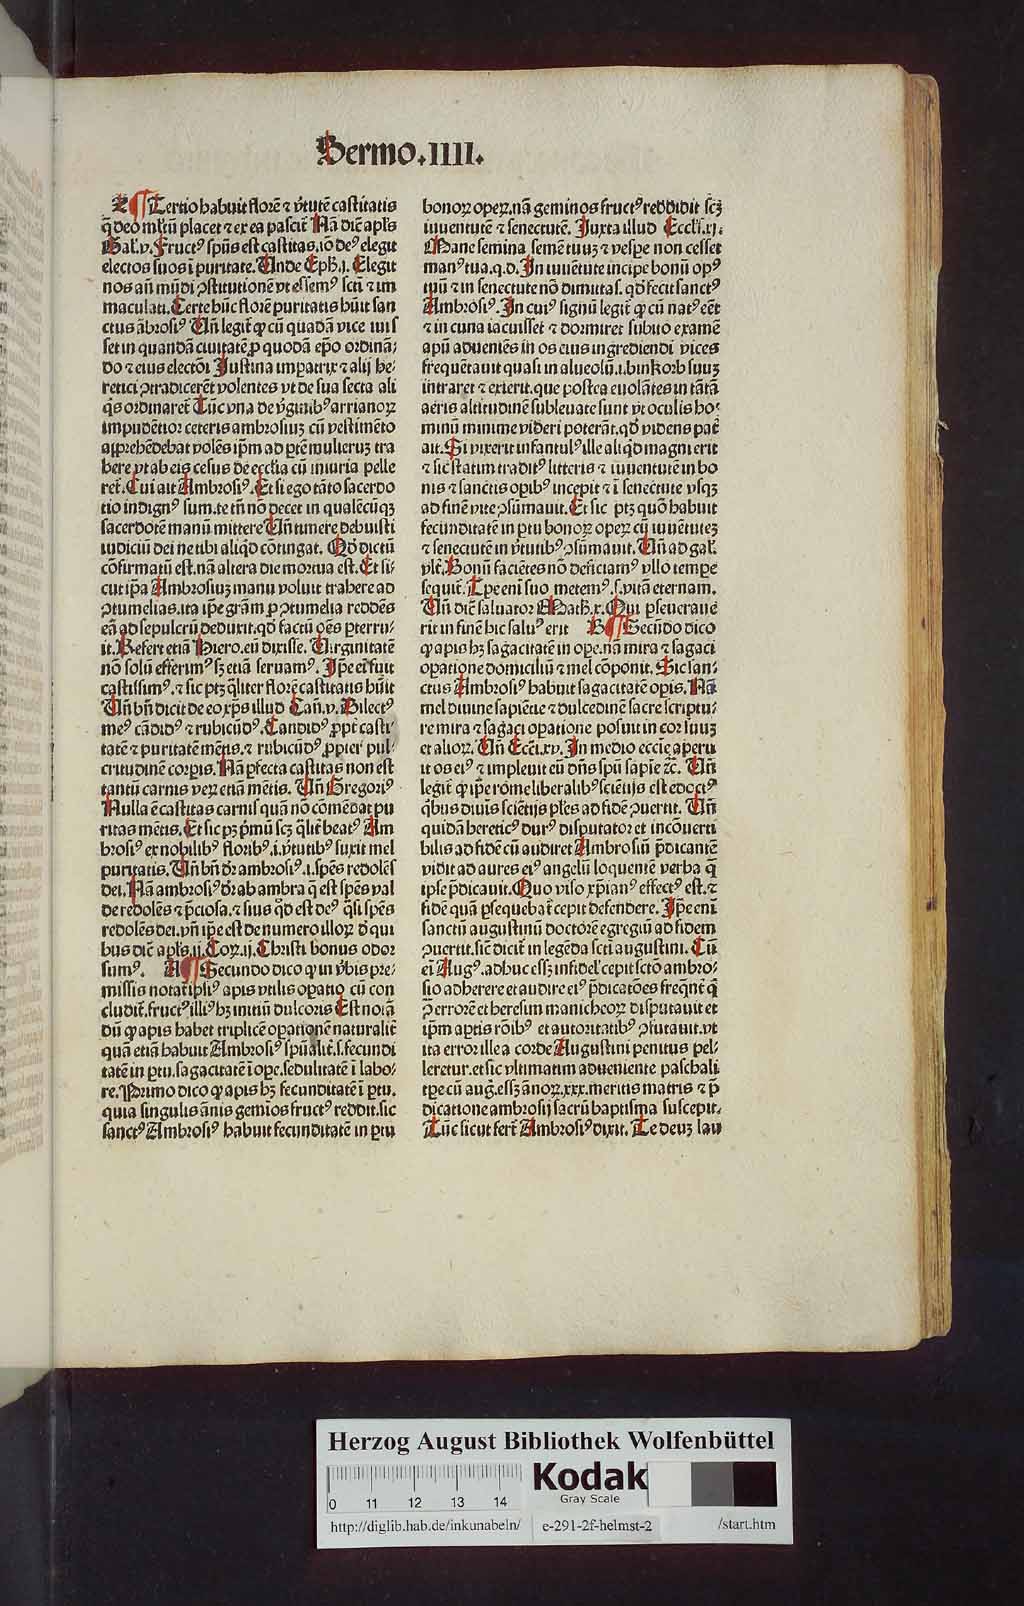 Sermo.IIII.
Tertio habuit florē ⁊ v̓tutē castitatis
q̄ deo mltū placet ⁊ ex ea pascit̄ Nā diē apl̓s
Gal̓.v. Fructꝰ spūs est castitas.iō deꝰ elegit
electos suos ī puritate. Unde Eph̓.j. Elegit
nos añ mūdi ꝯstitutionē vt essemꝰ scti ⁊ im
maculati. Certe hūc florē puritatis hūit san
ctus ābrosiꝰ Uñ legit̄ ꝙ cū quadā vice iuis
set in quandā ciuitatē ꝓ quodā epō ordinā⸗
do ⁊ eius electōi Justina impatrix ⁊ alij he⸗
retici ꝯtradicerēt volentes vt de sua secta ali
q̓s ordinaret̄ Tūc vna de v̓ginibꝰ arrianoꝝ
impudētior ceteris ambrosiuꝫ cū vestimēto
apprehēdebat volēs ip̄m ad ptē mulieruꝫ tra
here vt ab eis cesus de eccl̓ia cū iniuria pelle
ret̄. Cui ait Ambrosiꝰ. Et si ego tāto sacerdo
tio indignꝰ sum.te tñ nō decet in qualēcūqꝫ
sacerdotē manū mittere Uñ timere debuisti
iudiciū dei ne tibi aliqd̓ cōtingat. Qd̓ dictū
cōfirmatū est.nā altera die mortua est. Et si⸗
cut ip̄a Ambrosiuꝫ manu voluit trahere ad
ꝯtumelias.ita ip̄e grām ꝓ ꝯtumelia reddēs
eā ad sepulcrū deduxit.qd̓ factū oēs pterru⸗
it. Refert etiā Piero.eū dixisse. Uirginitatē
nō solū efferimꝰ sꝫ etiā seruamꝰ. Ip̄e eī fuit
castissimꝰ.⁊ sic ptꝫ q̓liter florē castitatis hūit
Uñ bñ dicit de eo xp̄s illud Cañ.v. Dilectꝰ
meꝰ cādidꝰ ⁊ rubicūdꝰ. Candidꝰ ꝓpt̓ casti⸗
tatē ⁊ puritatē mētis.⁊ rubicūdꝰ ꝓpter pul⸗
critudinē corpis. Nā pfecta castitas non est
tantū carnis veꝝ etiā mētis. Uñ Gregoriꝰ
Nulla ē castitas carnis quā nō cōmēdat pu
ritas mētis. Et sic pꝫ p̓mū scꝫ q̓lit̓ beatꝰ Am
brosiꝰ ex nobilibꝰ floribꝰ.i.v̓tutibꝰ suxit mel
puritatis. Uñ bñ dr̄ ambrosiꝰ.i.spēs redolēs
dei. Nā ambrosiꝰ dr̄ ab ambra q̄ est spēs val
de redolēs ⁊ p̄ciosa.⁊ sius qd̓ est deꝰ q̓si spēs
redolēs dei.vñ ip̄e est de numero illoꝝ d̓ qui
bus diē apl̓s.ij. Coꝝ.ij. Christi bonus odor
sumꝰ. Secundo dico ꝙ in v̓bis pre⸗
missis notat̄ ipsiꝰ apis vtilis opatio cū con
cludit̄.fructꝰ illiꝰ hꝫ initiū dulcoris Est notā
dū ꝙ apis habet triplicē opationē naturalit̓
quā etiā habuit Ambrosiꝰ spūalit̓.s.fecundi
tatē in ptu.sagacitatē ī ope.sedulitatē ī labo⸗
re. Primo dico ꝙ apis hꝫ fecunditatē ī ptu.
quia singulis ānis gemios fructꝰ reddit.sic
sanctꝰ Ambrosiꝰ habuit fecunditatē in ptu
bonoꝝ opeꝝ.nā geminos fructꝰ reddidit scꝫ
iuuentutē ⁊ senectutē. Juxta illud Eccli̓.xj.
Mane semina semē tuuꝫ ⁊ vespe non cesset
manꝰ tua.q.d. In iuuētute incipe bonū opꝰ
tuū ⁊ in senectute nō dimittas.qd̓ fecit sanctꝰ
Ambrosiꝰ. In cuiꝰ signū legit̄ ꝙ cū natꝰ eēt
⁊ in cuna iacuisset ⁊ dormiret subito examē
apū adueniēs in os eius ingrediendi vices
frequētauit quasi in alueolū.i.binkorb suuꝫ
intraret ⁊ exierit.que postea euolātes in tātā
aeris altitudinē subleuate sunt vt oculis ho⸗
minū minime videri poterāt.qd̓ videns pat̓
ait. Si vixerit infantulꝰ ille aliqd̓ magni erit
⁊ sic statim traditꝰ litteris ⁊ iuuentutē in bo
nis ⁊ sanctis opibꝰ incepit ⁊ ī senectute vsqꝫ
ad finē vite ꝯsūmauit. Et sic ptꝫ quō habuit
fecunditatē in ptu bonoꝝ opeꝝ cū iuuētuteꝫ
⁊ senectutē in v̓tutibꝰ ꝯsūmauit. Uñ ad gal̓.
vlt̓. Bonū faciētes nō deficiam̄ vllo tempe
sequit̄. Tpe eni suo metemꝰ.s.vitā eternam.
Uñ diē saluator Math̓.x. Qui pseuerauē
rit in finē hic saluꝰ erit B Secūdo dico
ꝙ apis hꝫ sagacitatē in ope.nā mira ⁊ sagaci
opatione domiciliū ⁊ mel cōponit. Sic san⸗
ctus Ambrosiꝰ habuit sagacitatē opis. Nā
mel diuine sapiētie ⁊ dulcedinē sacre scriptu⸗
re mira ⁊ sagaci opatione posuit in cor suuꝫ
et alioꝝ. Uñ Eccī.xv. In medio eccīe aperu
it os eiꝰ ⁊ impleuit eū dñs spū sapīe ⁊c̄. Uñ
legit̄ ꝙ ip̄e rōme liberalibꝰ sciētijs est edoctꝰ
q̓bus diuīs sciētijs pl̓es ad fidē ꝯuertit. Uñ
quidā hereticꝰ durꝰ disputator et incōuerti
bilis ad fidē cū audiret Ambrosiū p̄dicantē
vidit ad aures eiꝰ angelū loquentē verba q̄
ipse p̄dicauit. Quo viso xp̄ianꝰ effectꝰ est.⁊
fidē quā psequebat̄ cepit defendere. Ip̄e enī
sanctū augustinū doctorē egregiū ad fidem
ꝯuertit.sic̄ dicit̄ in legēda scti augustini. Cū
eī Augꝰ.adhuc essꝫ infidel̓ cepit sctō ambro⸗
sio adherere et audire eiꝰ p̄dicatōes freq̄nt̓ q̄
ꝓ errorē et heresim manicheoꝝ disputauit et
ip̄m aptis rōibꝰ et autoritatibꝰ ꝯfutauit.vt
ita error ille a corde Augustini penitus pel⸗
leretur.et sic vltimatim adueniente paschali
tpe cū aug̓.essꝫ ānoꝝ.xxx.meritis matris ⁊ p̄
dicatione ambrosij sacrū baptisma suscepit.
Tūc sicut fert̄ Ambrosiꝰ dixit. Te deuꝫ lau
Herzog August Bibliothek Wolfenbüttel
Kodak
Gray Scale
0 11 12 13 14
http://diglib.hab.de/inkunabeln/ e-291-2f-helmst-2 /start.htm